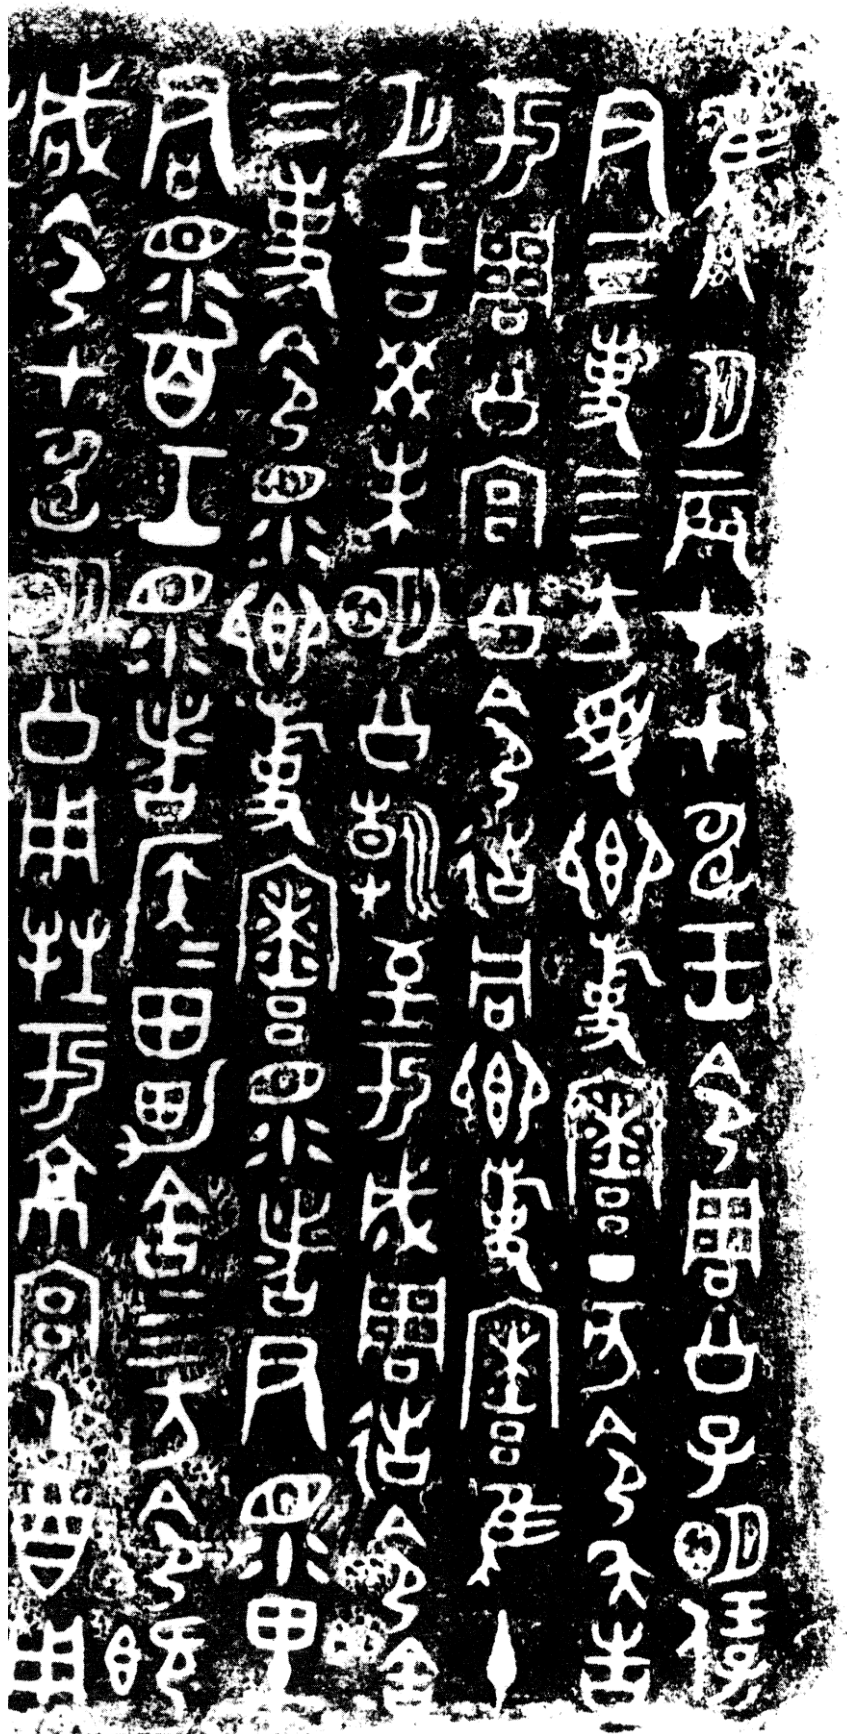 隹八月辰才甲申王令周公子明保
尹三事四方受卿事寮丁亥令夨告
于周公宮公令𢓊同卿事寮隹十
月=吉癸未明公朝至于成周𢓊令舍
三事令眔卿事寮眔者尹眔里
君眔百工眔者侯=田男舍四方令既
咸令甲申明公用牲于京宮乙酉用